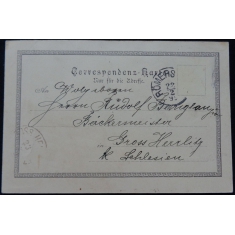 Correspondenz-Karte
Nur für die Adresse.
Wolgeboren
Herrn Rudolf
Bäckermeister
Gross Herrlitz
k Schlesien